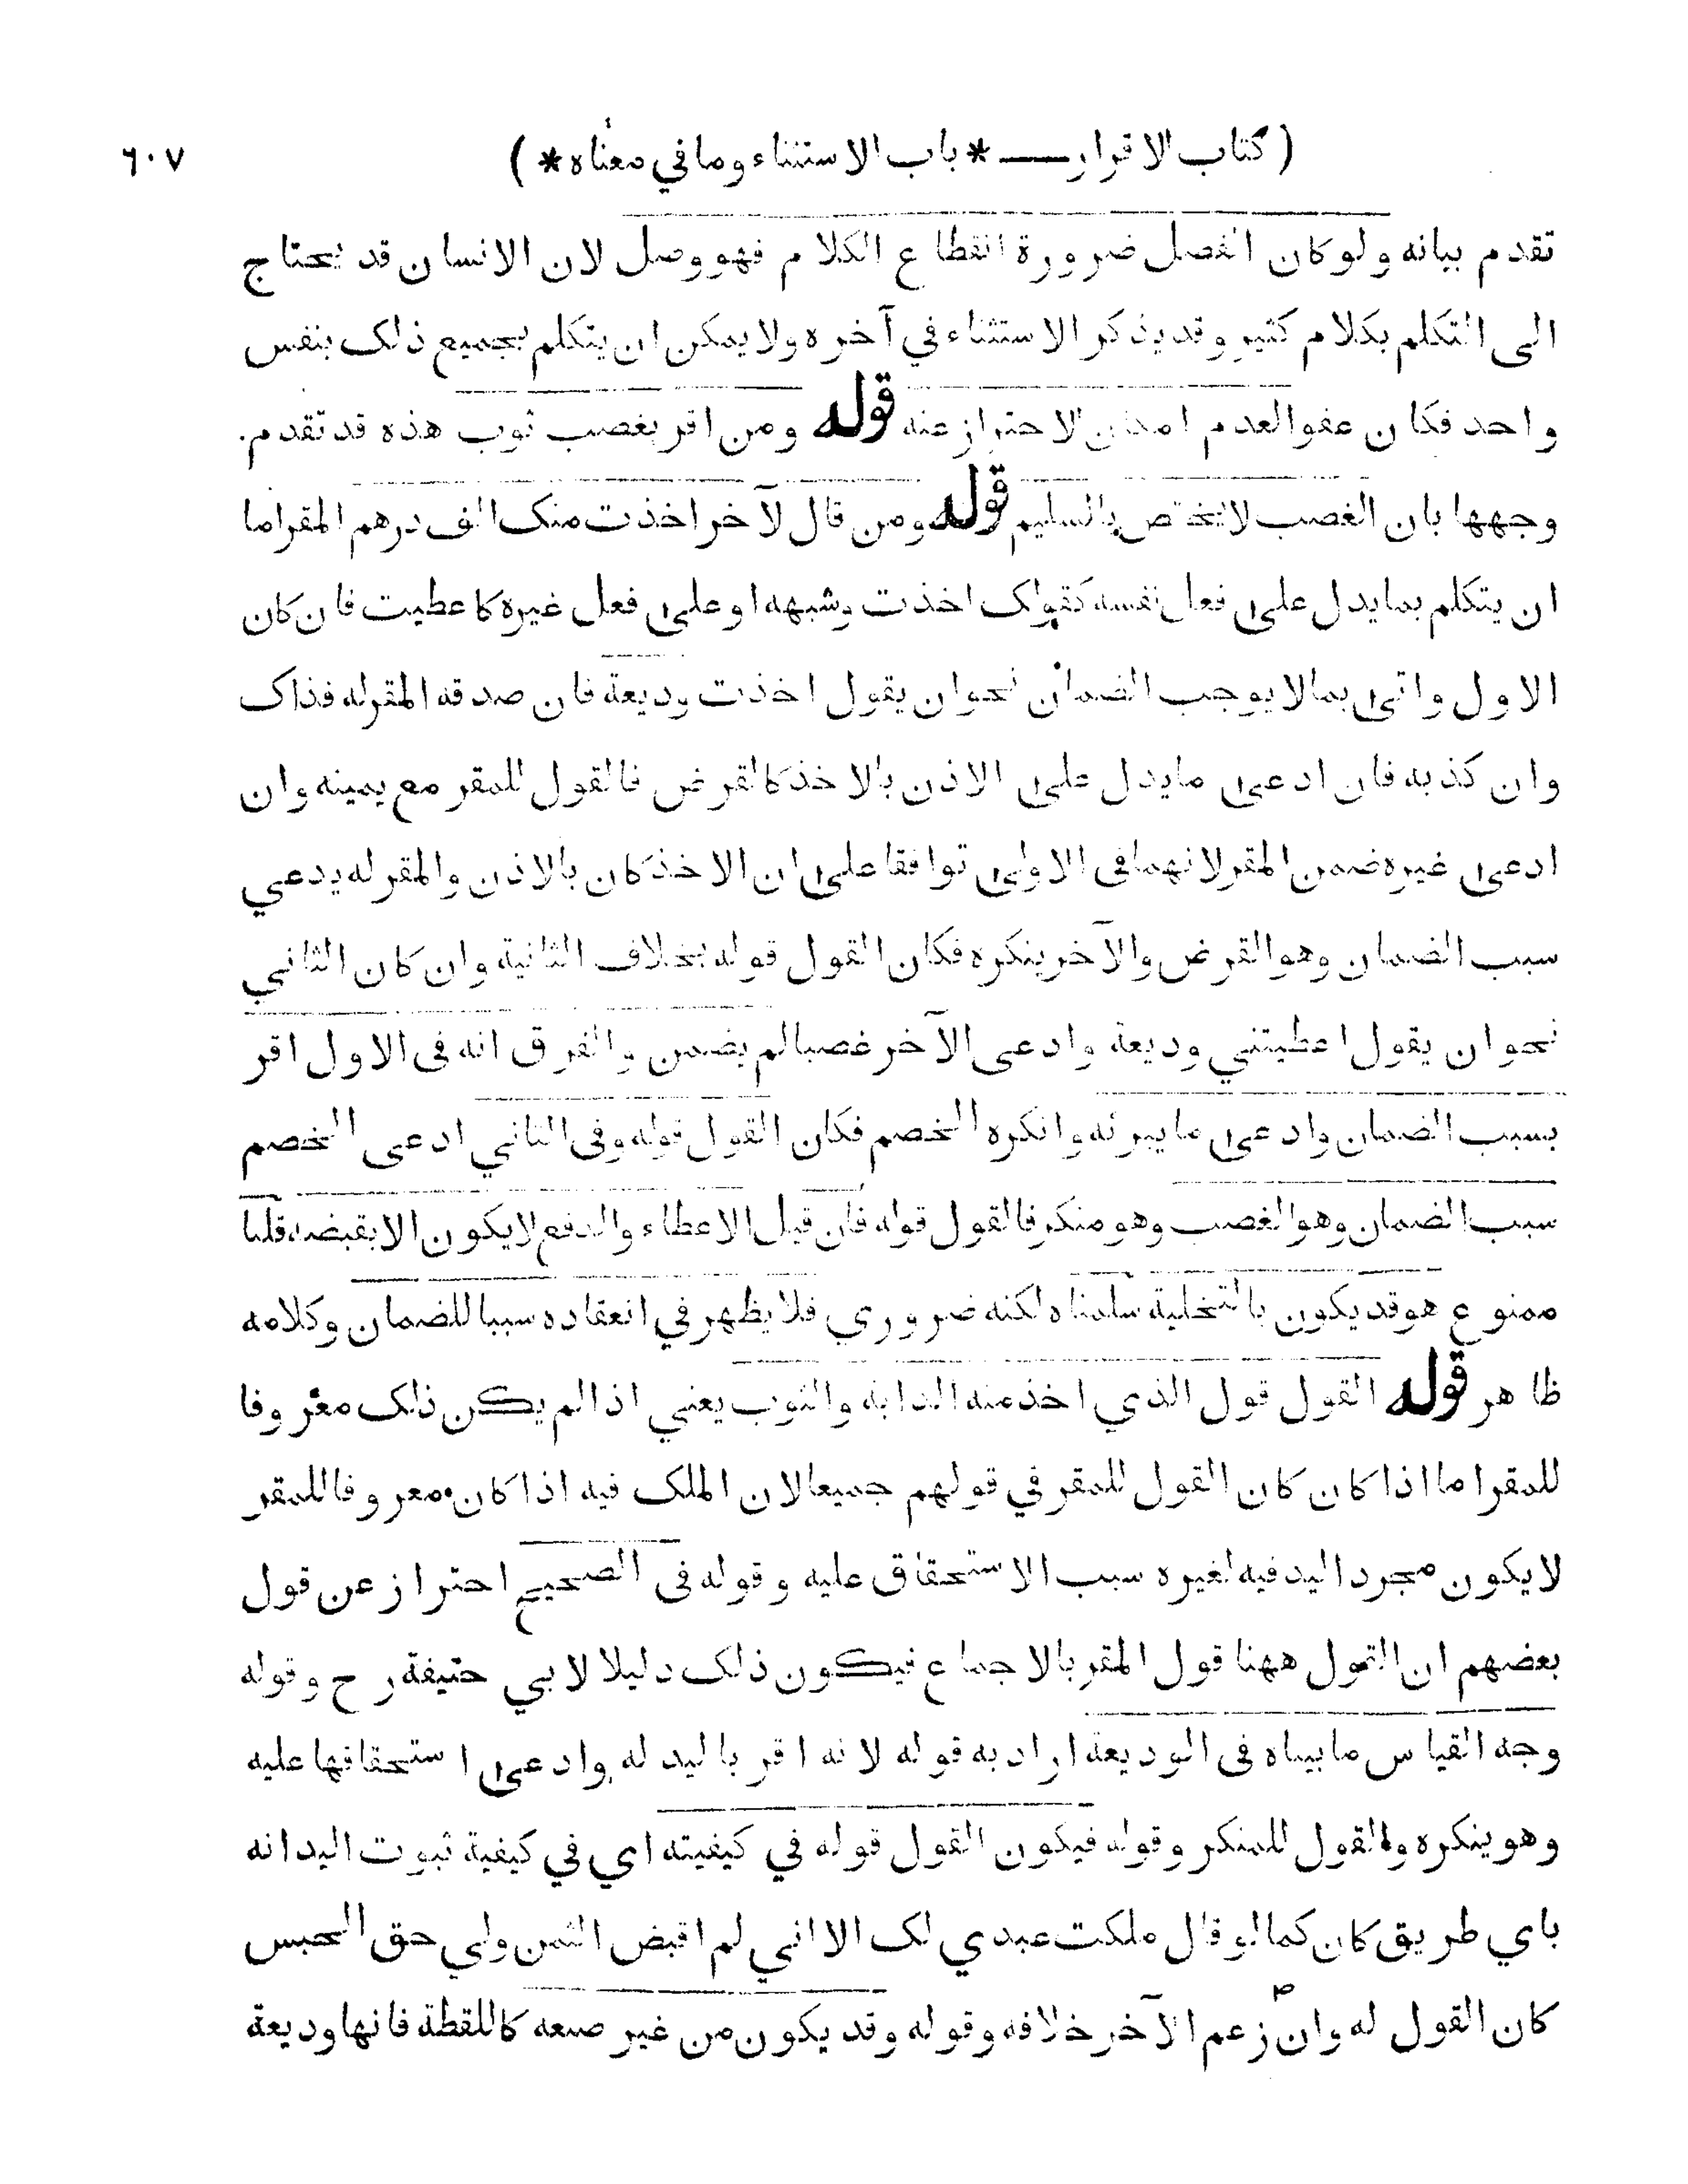 ٦٠٧
( كتاب الاقرار — * باب الاستثناء وما في معناه * )
تقدم بيانه ولو كان الفصل ضرورة انقطاع الكلام فهو وصل لان الانسان قد يحتاج
الى التكلم بكلام كثير وقد يذكر الاستثناء في آخره ولا يمكن ان يتكلم بجميع ذلك بنفس
واحد فكان عفوا لعدم امكان الاحتراز عنه قوله ومن اقر بغصب ثوب هذه قد تقدم
وجهها بان الغصب لا يختص بالسليم قوله ومن قال لآخر اخذت منك الف درهم المقر اما
ان يتكلم بما يدل على فعل نفسه كقولك اخذت وشبهه او على فعل غيره كاعطيت فان كان
الاول واتى بما لا يوجب الضمان نحو ان يقول اخذت وديعة فان صدقه المقر له فذاك
وان كذبه فان ادعى ما يدل على الاذن بالاخذ كالقرض فالقول للمقر مع يمينه وان
ادعى غيره ضمن المقر لانهما في الاولى توافقا على ان الاخذ كان بالاذن والمقر له يدعي
سبب الضمان وهو القرض والآخر ينكره فكان القول قوله بخلاف الثانية وان كان الثاني
نحو ان يقول اعطيتني وديعة وادعى الآخر غصبا لم يضمن والفرق انه في الاول اقر
بسبب الضمان وادعى ما يبرئه وانكره الخصم فكان القول قوله وفي الثاني ادعى الخصم
سبب الضمان وهو الغصب وهو منكر فالقول قوله فان قيل الاعطاء والدفع لا يكون الا بقبضه قلنا
ممنوع هو قد يكون بالتخلية سلمناه لكنه ضروري فلا يظهر في انعقاده سببا للضمان وكلامه
ظاهر قوله القول قول الذي اخذ منه الدابة والثوب يعني اذا لم يكن ذلك معروفا
للمقر اما اذا كان كان القول للمقر في قولهم جميعا لان الملك فيه اذا كان معروفا للمقر
لا يكون مجرد اليد فيه لغيره سبب الاستحقاق عليه وقوله في الصحيح احتراز عن قول
بعضهم ان القول ههنا قول المقر بالاجماع فيكون ذلك دليلا لابي حنيفة رح وقوله
وجه القياس ما بيناه في الوديعة اراد به قوله لانه اقر باليد له وادعى استحقاقها عليه
وهو ينكره والقول للمنكر وقوله فيكون القول قوله في كيفيته اي في كيفية ثبوت اليد انه
باي طريق كان كما لو قال ملكت عبدي لك الا اني لم اقبض الثمن ولي حق الحبس
كان القول له وان زعم الآخر خلافه وقوله وقد يكون من غير صنعه كاللقطة فانها وديعة